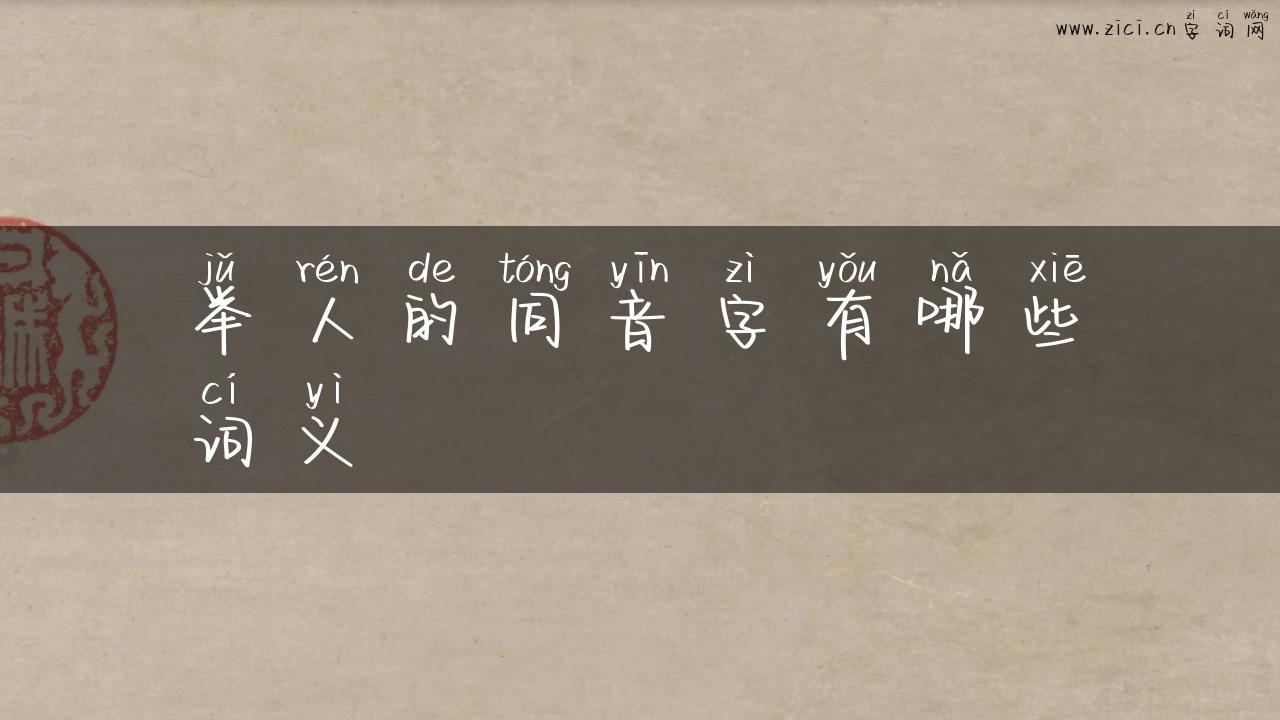 zì cí wǎng
www.zici.cn 字词网
jǔ rén de tóng yīn zì yǒu nǎ xiē
举人的同音字有哪些
cí yì
词义